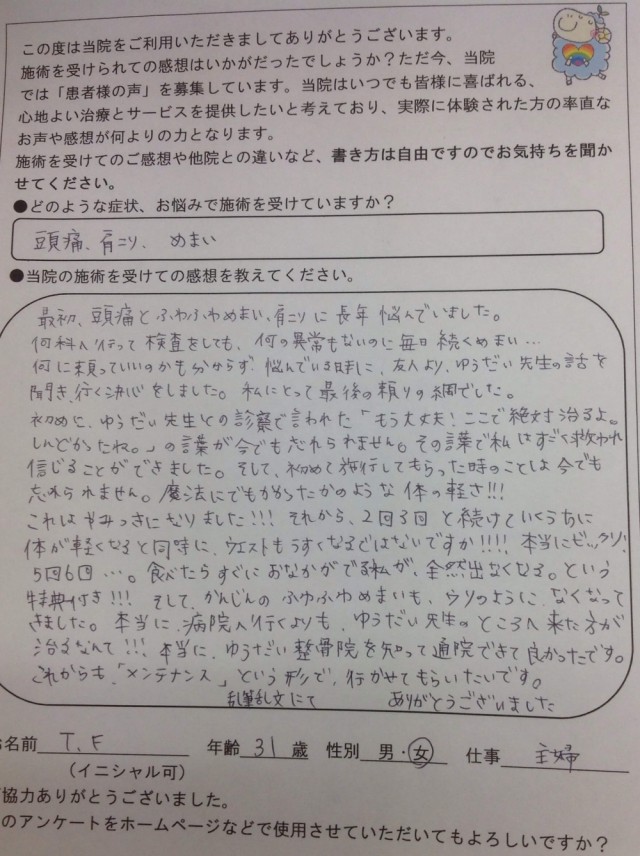 この度は当院をご利用いただきましてありがとうございます。
施術を受けられての感想はいかがだったでしょうか？ただ今、当院
では「患者様の声」を募集しています。当院はいつでも皆様に喜ばれる、
心地よい治療とサービスを提供したいと考えており、実際に体験された方の率直な
お声や感想が何よりの力となります。
施術を受けてのご感想や他院との違いなど、書き方は自由ですのでお気持ちを聞か
せてください。
●どのような症状、お悩みで施術を受けていますか？
頭痛、肩こり、めまい
●当院の施術を受けての感想を教えてください。
最初、頭痛とふわふわめまい、肩こりに長年悩んでいました。
何科へ行って検査をしても、何の異常もないのに毎日続くめまい…
何に頼っていいのかも分からず、悩んでいる時に、友人より、ゆうだい先生の話を
聞き、行く決心をしました。私にとって最後の頼りの綱でした。
初めに、ゆうだい先生との診察で言われた「もう大丈夫！ここで絶対治るよ。
しんどかったね。」の言葉が今でも忘れられません。その言葉で私はすごく救われ
信じることができました。そして、初めて施行してもらった時のことは今でも
忘れられません。魔法にでもかかったかのような体の軽さ!!!
これはやみつきになりました!!! それから、2回3回と続けていくうちに
体が軽くなると同時に、ウエストもうすくなるではないですか!!!! 本当にビックリ!
5回6回…。食べたらすぐにおなかがでる私が、全然出なくなる。という
特典付き!!! そして、かんじんのふわふわめまいも、ウソのように、なくなって
きました。本当に、病院へ行くよりも、ゆうだい先生のところへ来た方が
治るなんて!!! 本当に、ゆうだい整骨院を知って通院できて良かったです。
これからも、「メンテナンス」という形で、行かせてもらいたいです。
乱筆乱文にて ありがとうございました
お名前 T.F 年齢 31 歳 性別 男・女 仕事 主婦
（イニシャル可）
協力ありがとうございました。
のアンケートをホームページなどで使用させていただいてもよろしいですか？